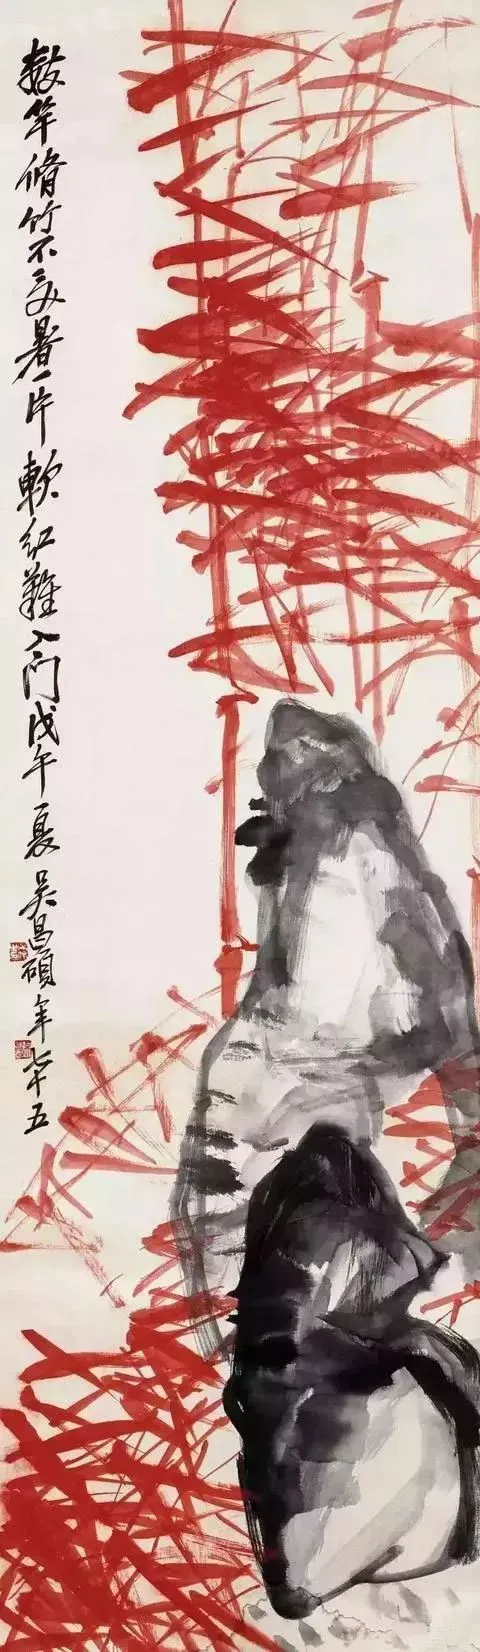 數竿脩竹不受暑一片軟紅難入門戊午夏吳昌碩年七十五